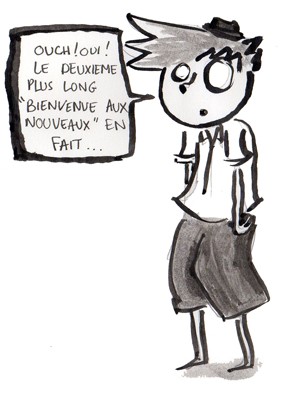 OUCH! OUI!
LE DEUXIEME
PLUS LONG
"BIENVENUE AUX
NOUVEAUX" EN
FAIT...